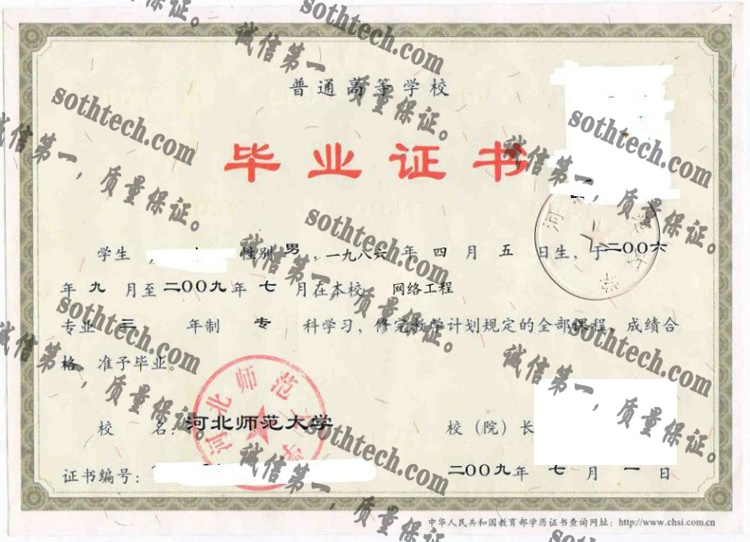 普通高等学校
毕业证书
学生 性别 男，一九八六年 四 月 五 日生，于二〇〇六
年 九 月至二〇〇九年 七 月在本校 网络工程
专业 三 年制 专 科学习，修完教学计划规定的全部课程，成绩合
格，准予毕业。
校 名：河北师范大学 校（院）长
证书编号： 二〇〇九年 七 月 一 日
中华人民共和国教育部学历证书查询网址：http://www.chsi.com.cn
河北师范大学
sothtech.com
诚信第一，质量保证。
sothtech.com
诚信第一，质量保证。
sothtech.com
诚信第一，质量保证。
sothtech.com
诚信第一，质量保证。
sothtech.com
诚信第一，质量保证。
sothtech.com
诚信第一，质量保证。
sothtech.com
诚信第一，质量保证。